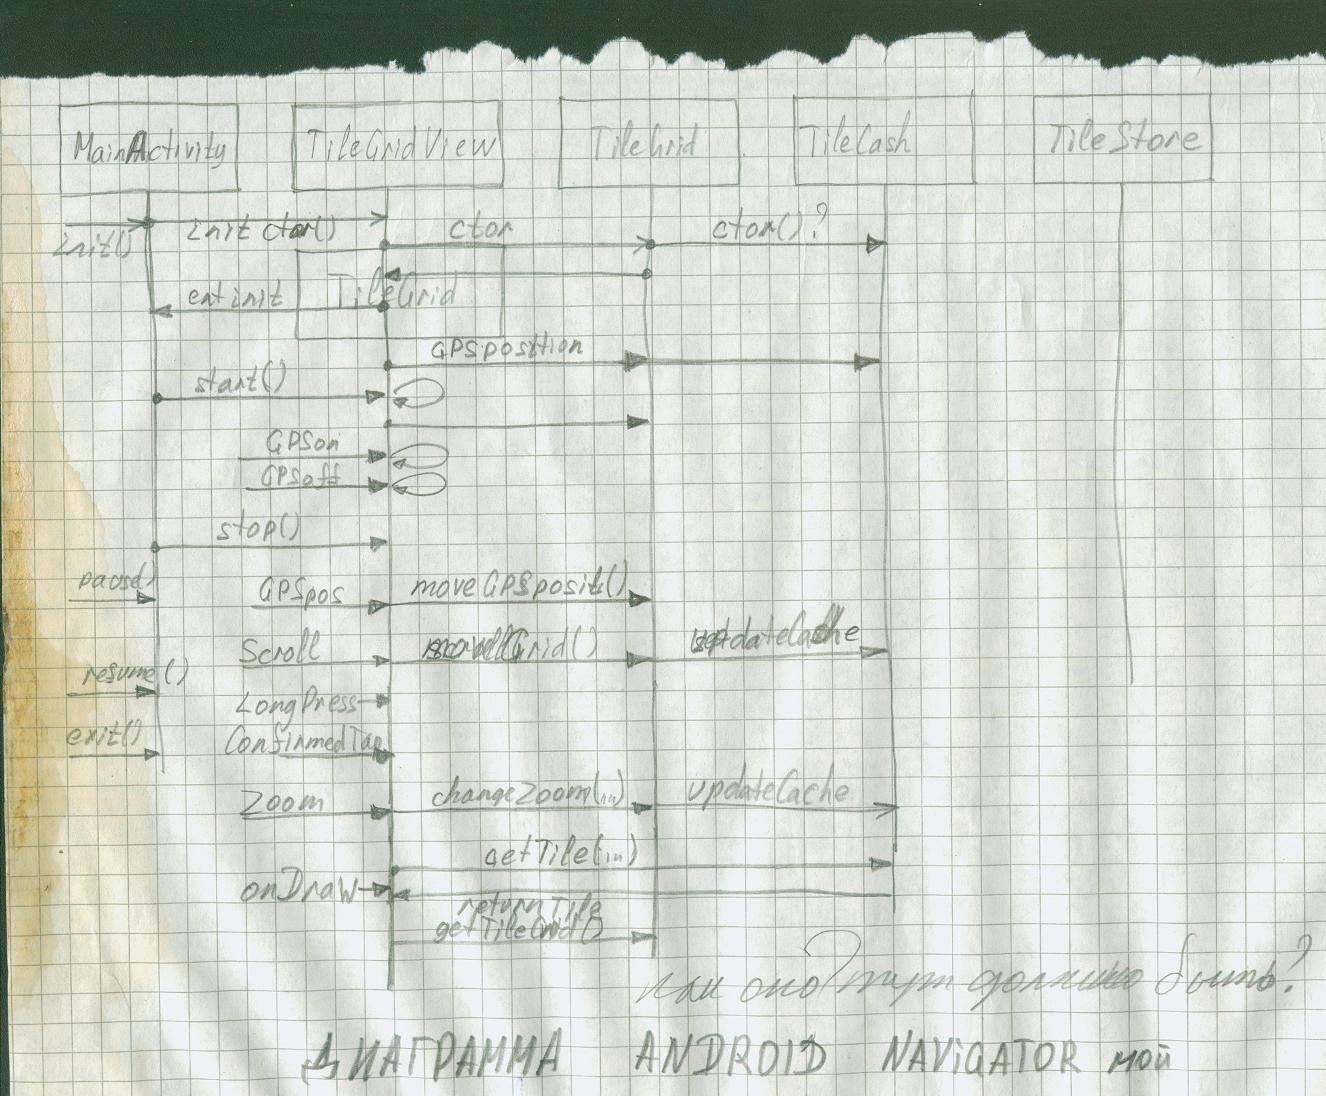 MainActivity TileGridView TileGrid TileCash TileStore
init() init ctor() ctor ctor()?
TileGrid
GPSposition
start()
GPSon
GPSoff
stop()
pause GPSpos moveGPSposit()
Scroll Grid() updateCache
resume()
LongPress
exit() ConfirmedTap
Zoom changeZoom(in) updateCache
getTile(in)
onDraw
returnTile
getTileGrid()
как оно тут должно быть?
ДИАГРАММА ANDROID NAViGATOR мой